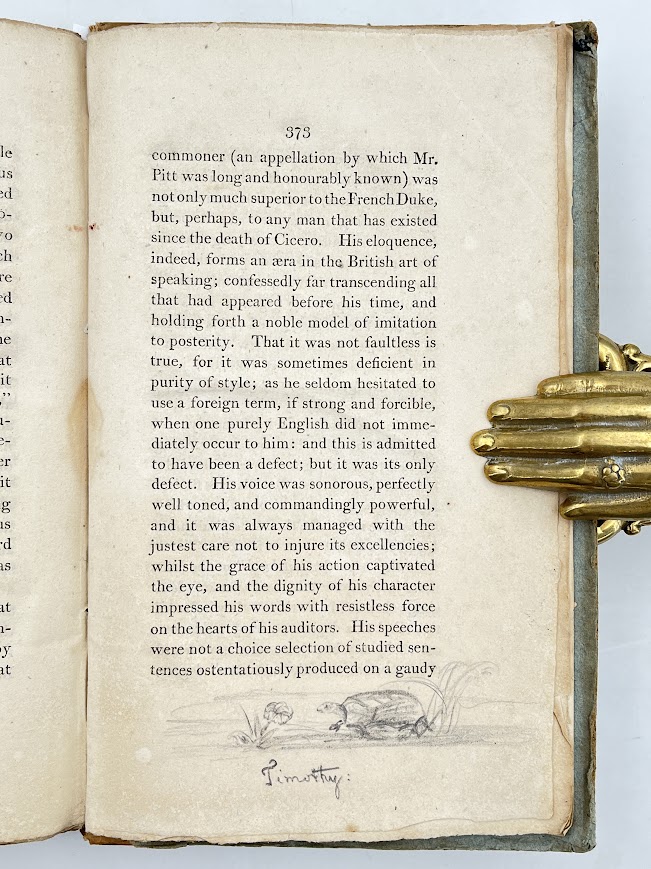 le
us
ed
o-
vo
ch
re
ed
n-
ne
at
it
,”
u-
e-
er
it
ng
us
rd
as
at
n-
by
at
373
commoner (an appellation by which Mr.
Pitt was long and honourably known) was
not only much superior to the French Duke,
but, perhaps, to any man that has existed
since the death of Cicero. His eloquence,
indeed, forms an æra in the British art of
speaking; confessedly far transcending all
that had appeared before his time, and
holding forth a noble model of imitation
to posterity. That it was not faultless is
true, for it was sometimes deficient in
purity of style; as he seldom hesitated to
use a foreign term, if strong and forcible,
when one purely English did not imme-
diately occur to him: and this is admitted
to have been a defect; but it was its only
defect. His voice was sonorous, perfectly
well toned, and commandingly powerful,
and it was always managed with the
justest care not to injure its excellencies;
whilst the grace of his action captivated
the eye, and the dignity of his character
impressed his words with resistless force
on the hearts of his auditors. His speeches
were not a choice selection of studied sen-
tences ostentatiously produced on a gaudy
Timothy: